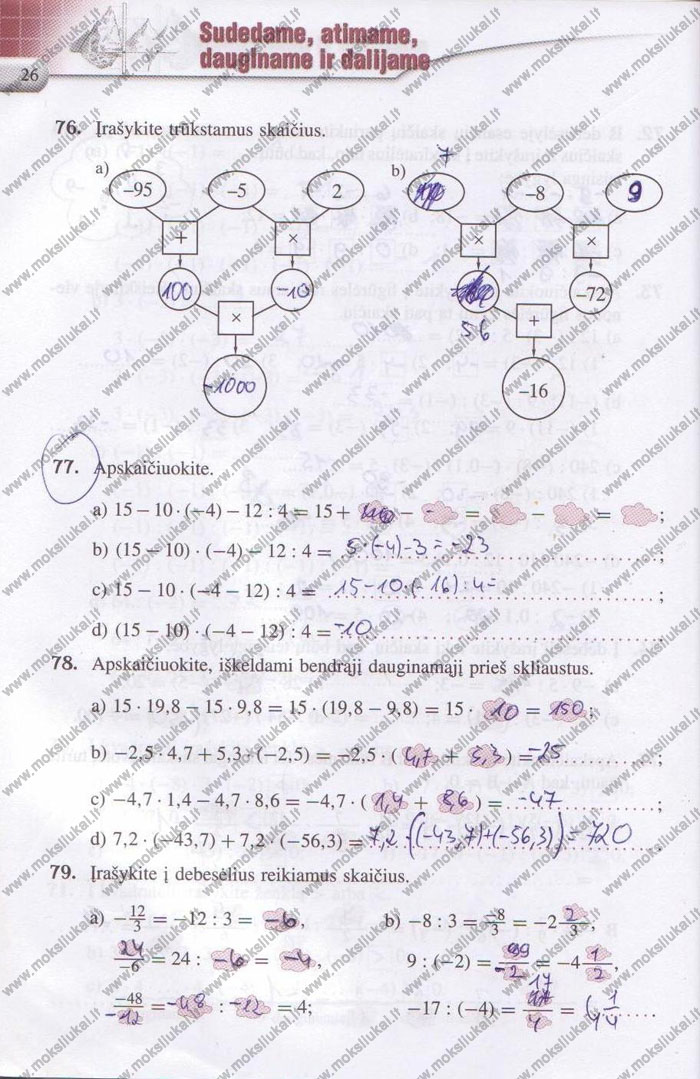 26
Sudedame, atimame,
dauginame ir dalijame
76. Įrašykite trūkstamus skaičius.
a) b) 7
-95 -5 2 -8 9
+ × × ×
100 -10 -72
56
× +
-1000 -16
77. Apskaičiuokite.
a) 15 – 10 · (–4) – 12 : 4 = 15 + – = – = ;
b) (15 – 10) · (–4) – 12 : 4 = 5·(-4)-3=-23 ;
c) 15 – 10 · (–4 – 12) : 4 = 15-10·(-16):4= ;
d) (15 – 10) · (–4 – 12) : 4 = -10
78. Apskaičiuokite, iškeldami bendrąjį dauginamąjį prieš skliaustus.
a) 15 · 19,8 – 15 · 9,8 = 15 · (19,8 – 9,8) = 15 · 10 = 150;
b) –2,5 · 4,7 + 5,3 · (–2,5) = –2,5 · ( 4,7 + 5,3 ) = -25 ;
c) –4,7 · 1,4 – 4,7 · 8,6 = –4,7 · ( 1,4 + 8,6 ) = -47 ;
d) 7,2 · (–43,7) + 7,2 · (–56,3) = 7,2·((-43,7)+(-56,3))=720
79. Įrašykite į debesėlius reikiamus skaičius.
a) –12/3 = –12 : 3 = -6, b) –8 : 3 = –8/3 = –2 2/3,
24/–6 = 24 : -6 = -4, 9 : (–2) = /-2 = –4 1/2,
–48/-12 = -48 : -12 = 4; –17 : (–4) = 17/ =
www.moksliukai.lt